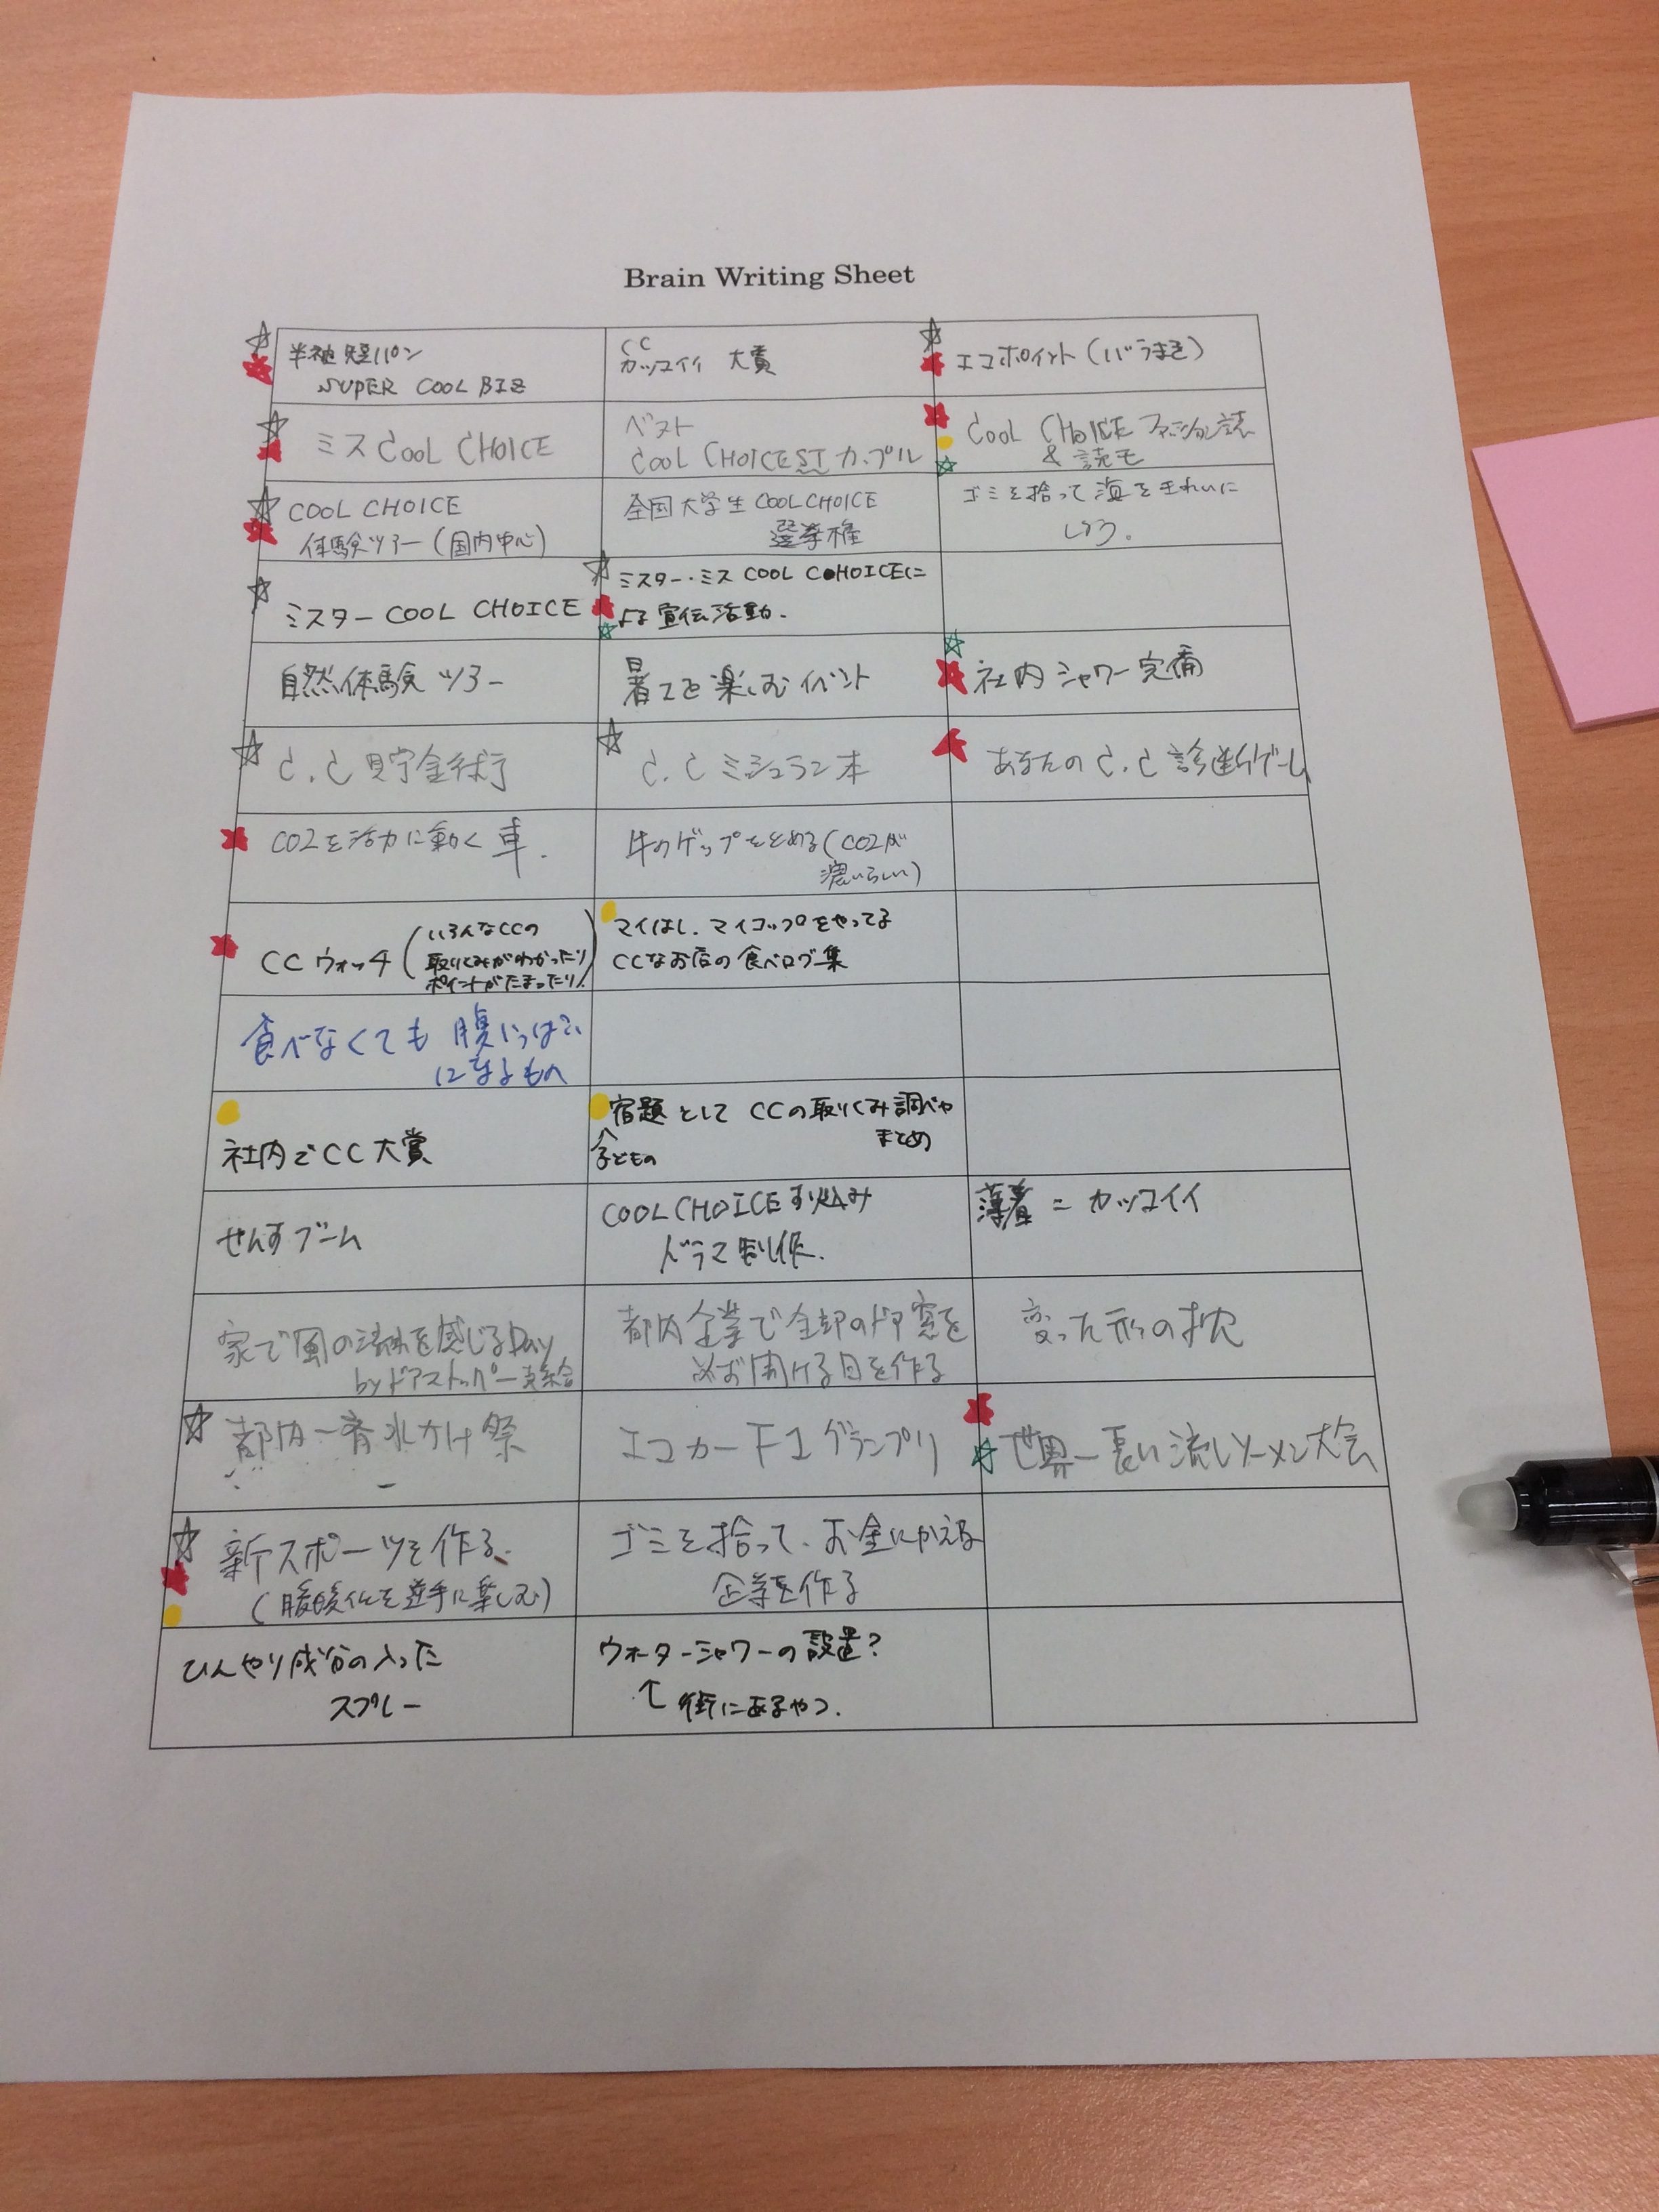 Brain Writing Sheet
半袖短パン
SUPER COOL BIZ
CC
カッコイイ 大賞
エコポイント(バラまき)
ミス COOL CHOICE
ベスト
COOL CHOICEST カップル
COOL CHOICE ファッション誌
& 読モ
COOL CHOICE
体験ツアー(国内中心)
全国大学生 COOL CHOICE
選挙権
ゴミを拾って海をきれいに
しよう.
ミスター COOL CHOICE
ミスター・ミス COOL CHOICEに
よる宣伝活動.
自然体験ツアー
暑さを楽しむイベント
社内シャワー完備
C.C貯金術
C.Cミシュラン本
あなたのC.C診断ゲーム
CO2を活力に動く車.
牛のゲップをとめる(CO2が
濃いらしい)
CCウォッチ(いろんなCCの
取りくみがわかったり
ポイントがたまったり)
マイはし、マイコップをやってる
CCなお店の食べログ集
食べなくても腹いっぱい
になるもの
社内でCC大賞
宿題として CCの取りくみ調べや
子どもの
まとめ
せんすブーム
COOL CHOICEすり込み
ドラマ制作.
薄着 = カッコイイ
家で風の流れを感じるDay
by ドアストッパー支給
都内企業で全部のドア窓を
必ず開ける日を作る
変った形の枕
都内一斉水かけ祭
エコカーF1グランプリ
世界一長い流しソーメン大会
新スポーツを作る.
(温暖化を逆手に楽しむ)
ゴミを拾って、お金にかえる
企業を作る
ひんやり成分の入った
スプレー
ウォーターシャワーの設置?
↑ 街にあるやつ.